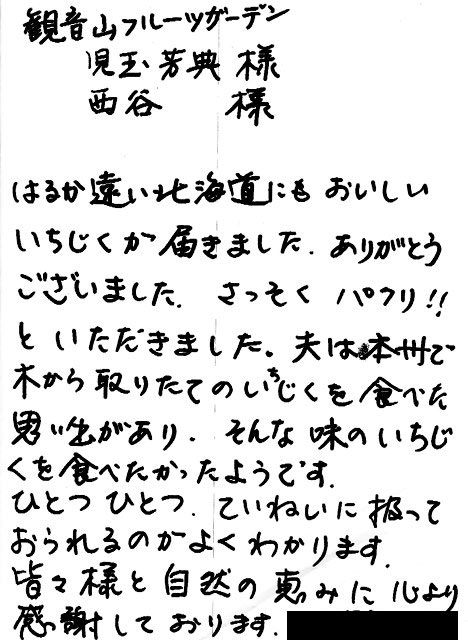 観音山フルーツガーデン
児玉芳典 様
西谷 様
はるか遠い北海道にも おいしい
いちじくが届きました. ありがとう
ございました. さっそく パクリ!!
と いただきました。夫は本州で
木から取りたてのいちじくを食べた
思い出があり. そんな味のいちじ
くを食べたかったようです.
ひとつ ひとつ. ていねいに扱って
おられるのがよくわかります.
皆々様と自然の恵みに心より
感謝しております.